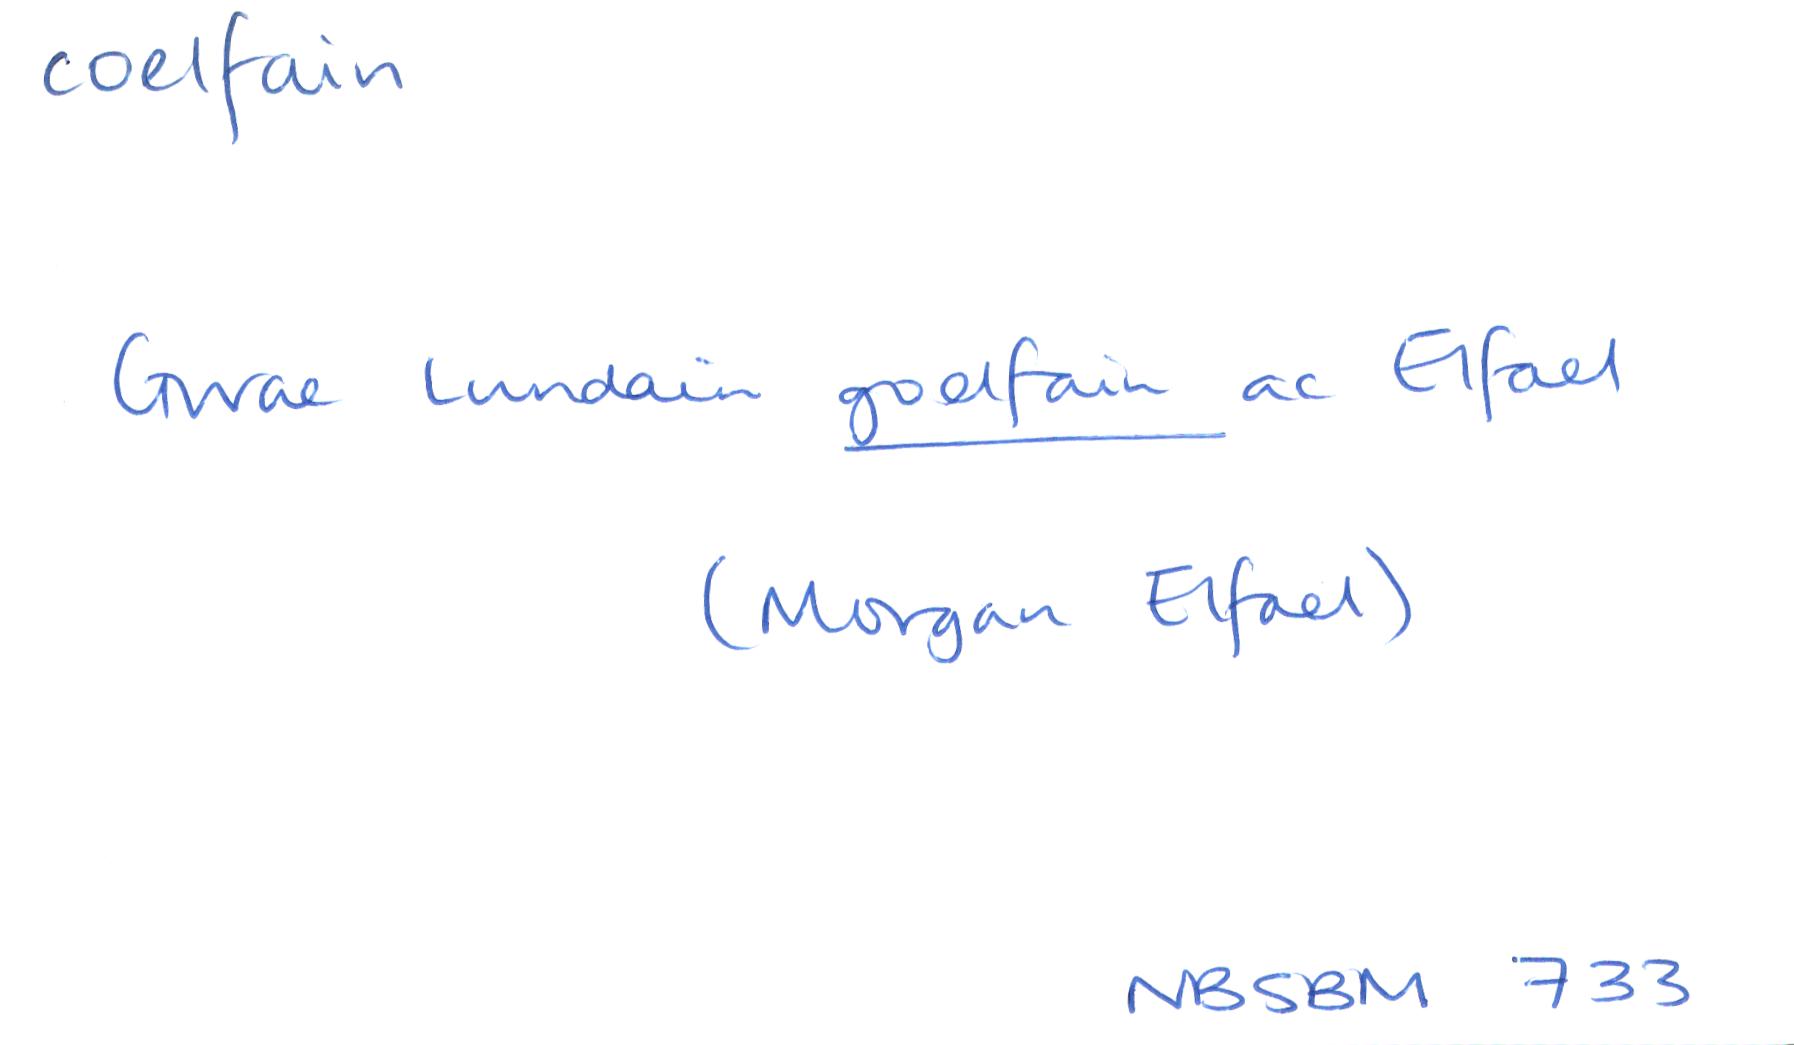 coelfain
Gwae Lundain goelfain ac Elfael
(Morgan Elfael)
NBSBM 733